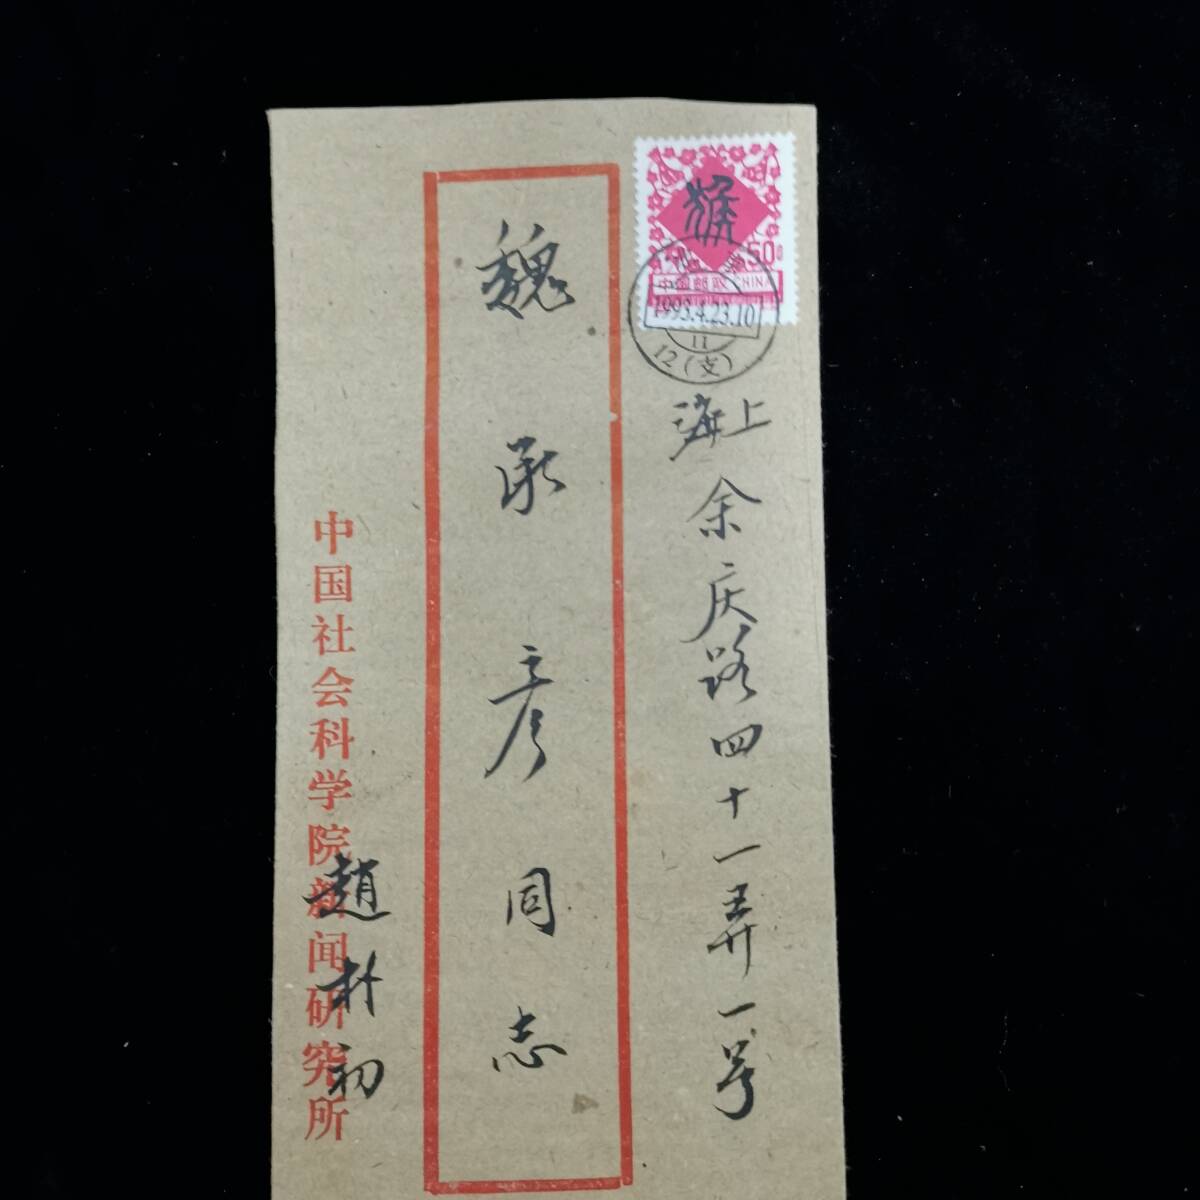 猴
50分
中国邮政 CHINA
1993.4.23.10
11
12(支)
上海
余庆路四十一弄一号
魏承彦同志
中国社会科学院新闻研究所
趙朴初